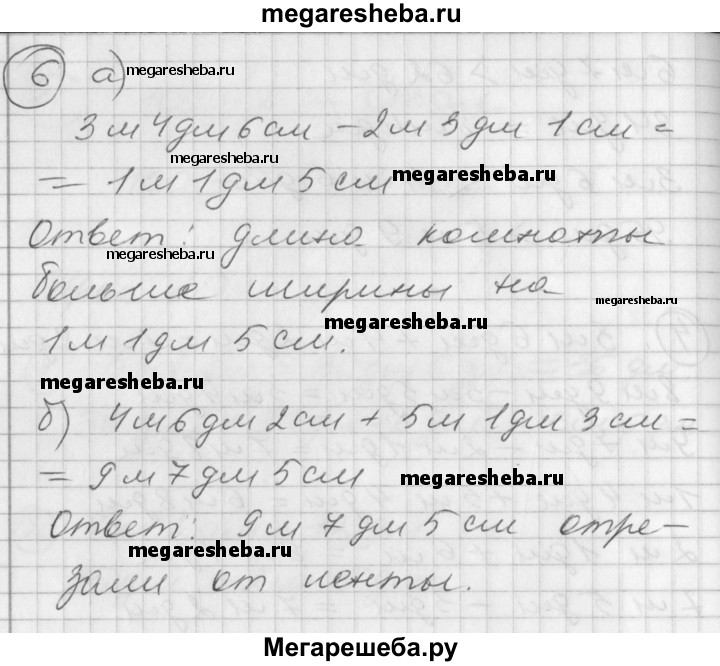 megaresheba.ru
6 а) megaresheba.ru
3 м 4 дм 6 см - 2 м 3 дм 1 см =
megaresheba.ru
= 1 м 1 дм 5 см megaresheba.ru
Ответ: длина комнаты
megaresheba.ru
больше ширины на
megaresheba.ru
1 м 1 дм 5 см. megaresheba.ru
megaresheba.ru
б) 4 м 6 дм 2 см + 5 м 1 дм 3 см =
= 9 м 7 дм 5 см megaresheba.ru
Ответ: 9 м 7 дм 5 см отре-
megaresheba.ru
зали от ленты.
Мегарешеба.ру